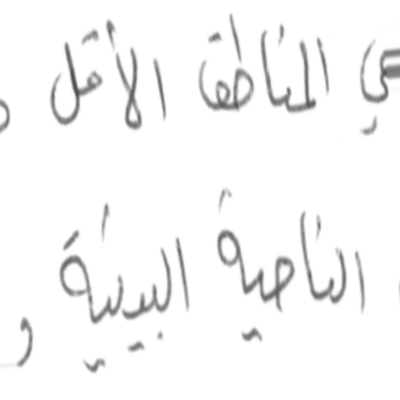 المناطق الأقل
الناحية البيئية و